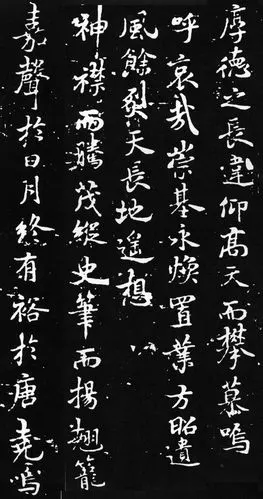 厚德之長違仰高天而攀慕嗚
呼哀哉崇基永煥置業方昭遺
風餘烈天長地遙想
神襟而騰茂縱史筆而揚翹籠
嘉聲於日月終有裕於唐堯嗚